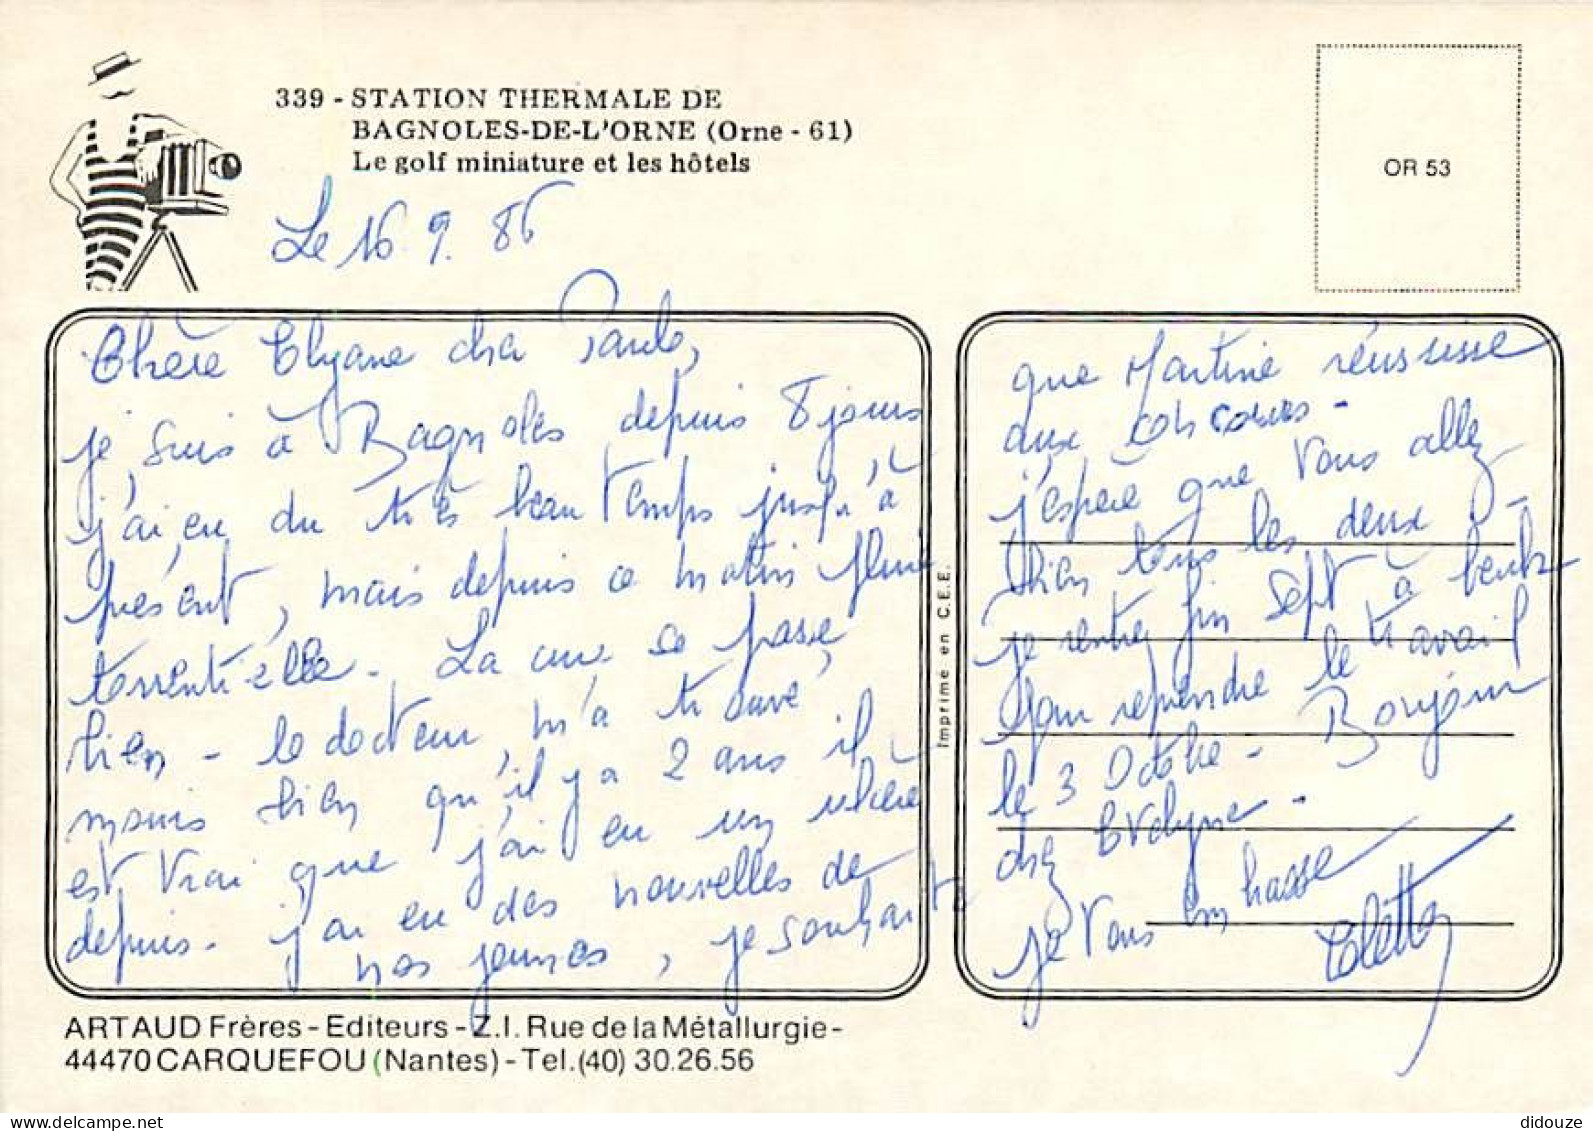 339 - STATION THERMALE DE
BAGNOLES-DE-L'ORNE (Orne - 61)
Le golf miniature et les hôtels
OR 53
Le 16.9.86
Chère Elyane cher Paulo,
je suis à Bagnoles depuis 8 jours
j'ai eu du très beau temps jusqu'à
présent, mais depuis ce matin pluie
torrentielle. La cure se passe
bien - le docteur m'a trouvé
moins bien qu'il y a 2 ans il
est vrai que j'ai eu un ulcère
depuis. j'ai eu des nouvelles de
nos jeunes, je souhaite
que Martine réussisse
aux concours -
j'espère que vous allez
bien tous les deux -
je rentre fin sept à
pour reprendre le travail
le 3 Octobre - Bonjour
chez Evelyne -
je vous embrasse
Colette
Imprimé en C.E.E.
ARTAUD Frères - Editeurs - Z.I. Rue de la Métallurgie -
44470 CARQUEFOU (Nantes) - Tel.(40) 30.26.56
delcampe.net
didouze